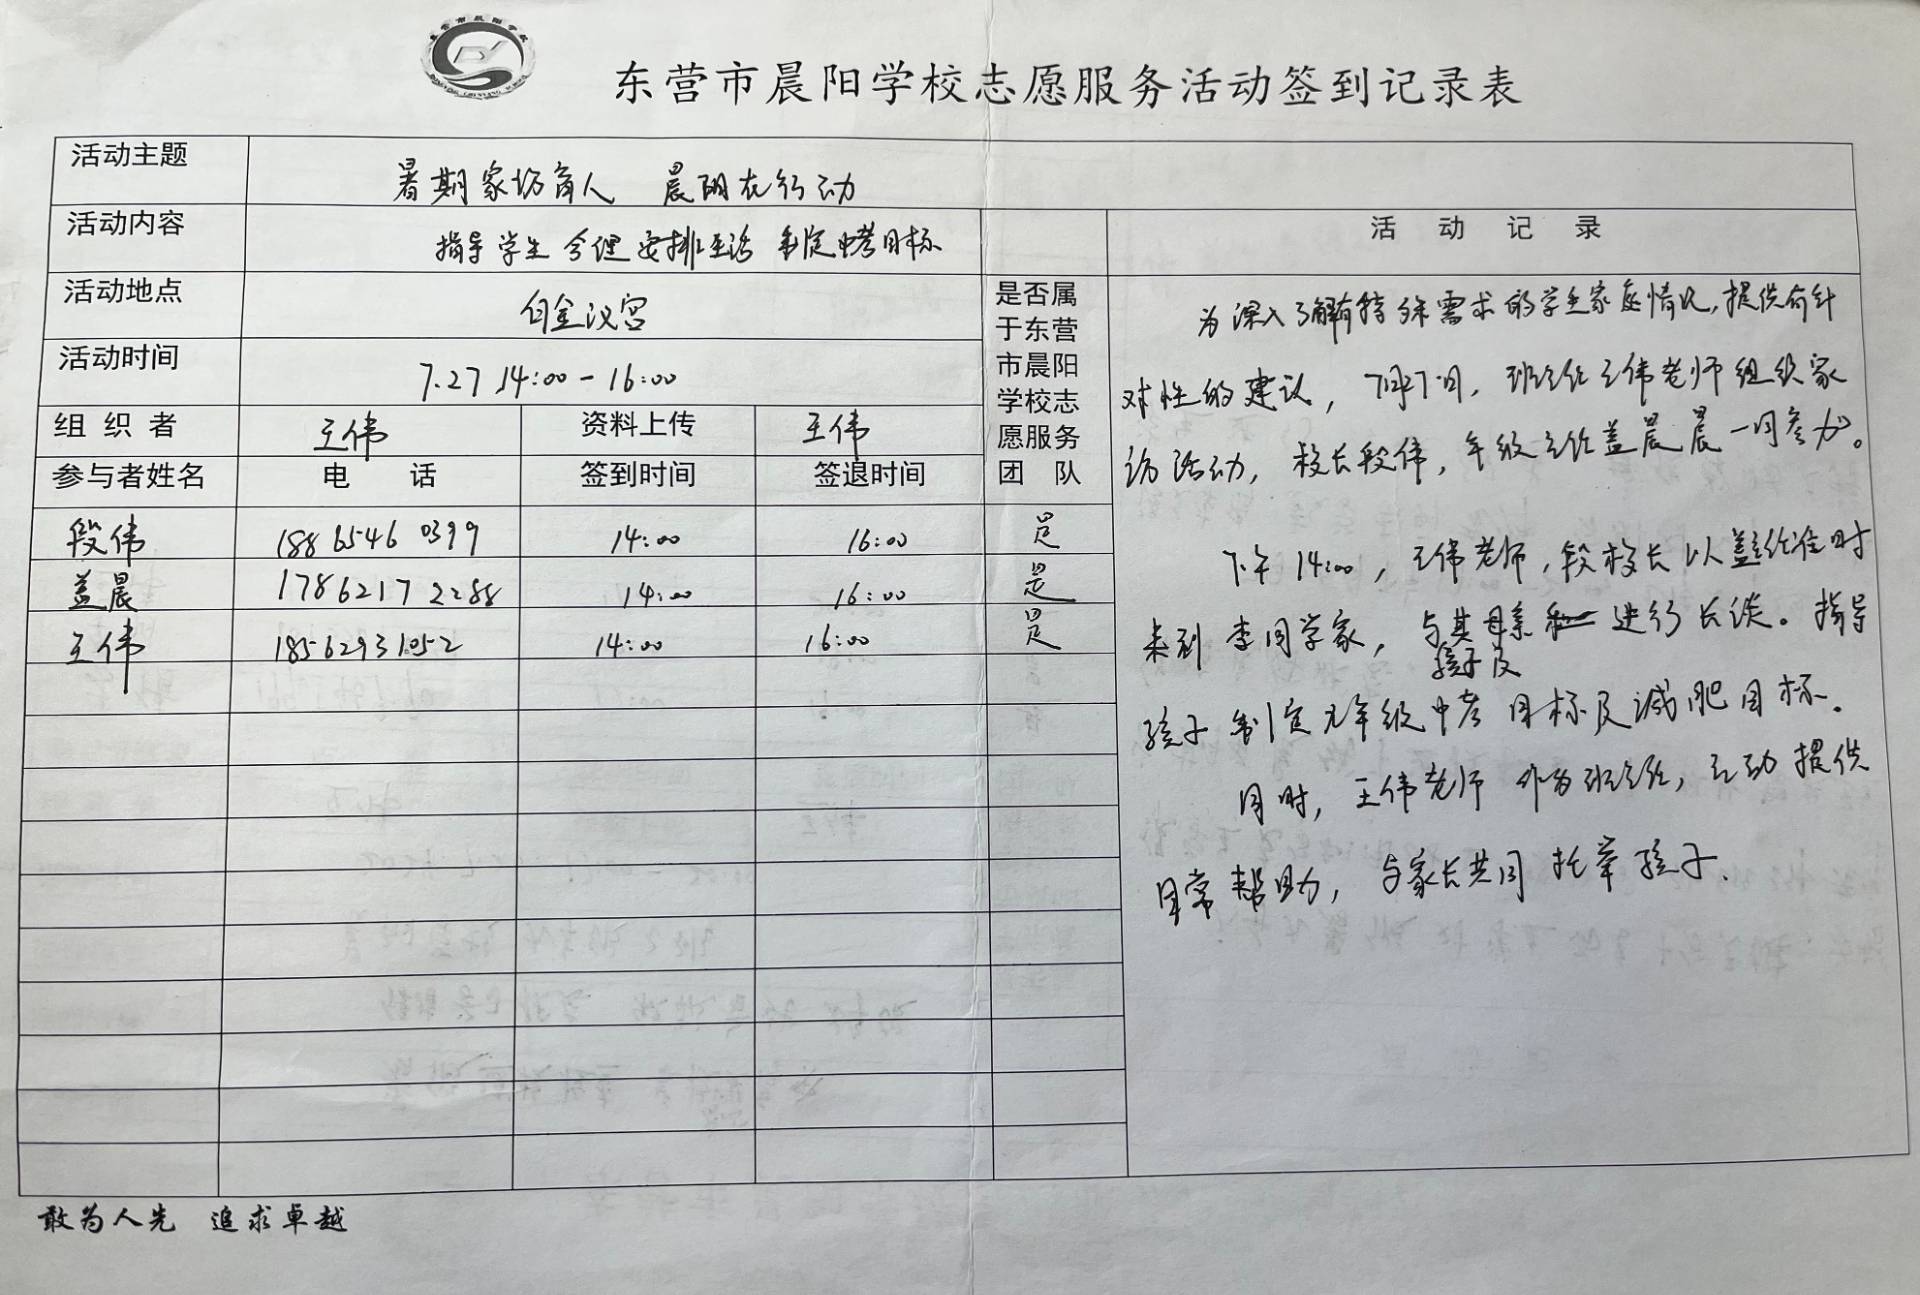 东营市晨阳学校志愿服务活动签到记录表
活动主题 暑期家访育人 晨阳在行动
活动内容 指导学生合理安排生活 制定中考目标
活动地点 白金汉宫
活动时间 7.27 14:00-16:00
组织者 王伟 资料上传 王伟
参与者姓名 电话 签到时间 签退时间 是否属于东营市晨阳学校志愿服务团队
段伟 188 6546 0399 14:00 16:00 是
盖晨 178 6217 2288 14:00 16:00 是
王伟 18562931052 14:00 16:00 是
活动记录
为深入了解有特殊需求的学生家庭情况,提供有针
对性的建议,7月27日,班主任王伟老师组织家
访活动,校长段伟,年级主任盖晨晨一同参加。
下午14:00,王伟老师,段校长以盖主任准时
来到李同学家,与其母亲和进行长谈。指导
孩子及
孩子制定九年级中考目标及减肥目标。
同时,王伟老师作为班主任,主动提供
日常帮助,与家长共同托举孩子.
敢为人先 追求卓越